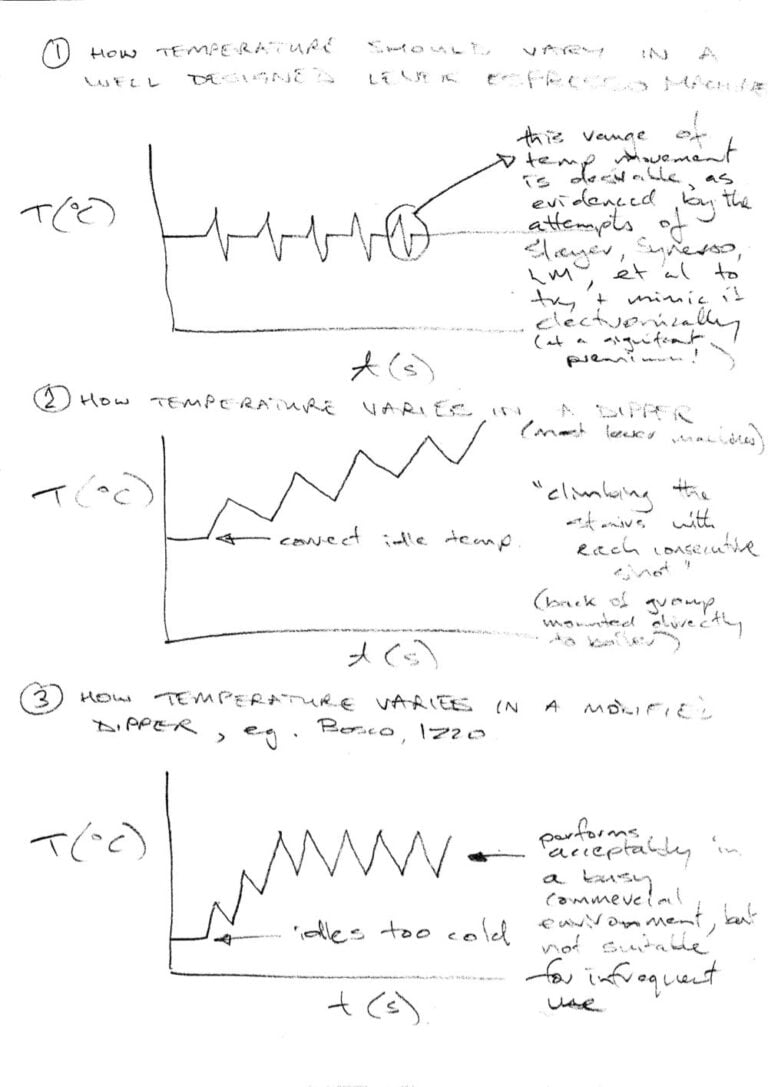 ① HOW TEMPERATURE SHOULD VARY IN A
WELL DESIGNED LEVER ESPRESSO MACHINE
this range of
temp movement
is desirable, as
evidenced by the
attempts of
Slayer, Synesso,
LM, et al to
try + mimic it
electronically
(at a significant
premium!)
T(°C)
t(s)
② HOW TEMPERATURE VARIES IN A DIPPER
(most lever machines)
T(°C)
correct idle temp.
"climbing the
stairs with
each consecutive
shot"
(back of group
mounted directly
to boiler)
t(s)
③ HOW TEMPERATURE VARIES IN A MODIFIED
DIPPER, eg. Bosco, Izzo
T(°C)
idles too cold
performs
acceptably in
a busy
commercial
environment, but
not suitable
for infrequent
use
t(s)